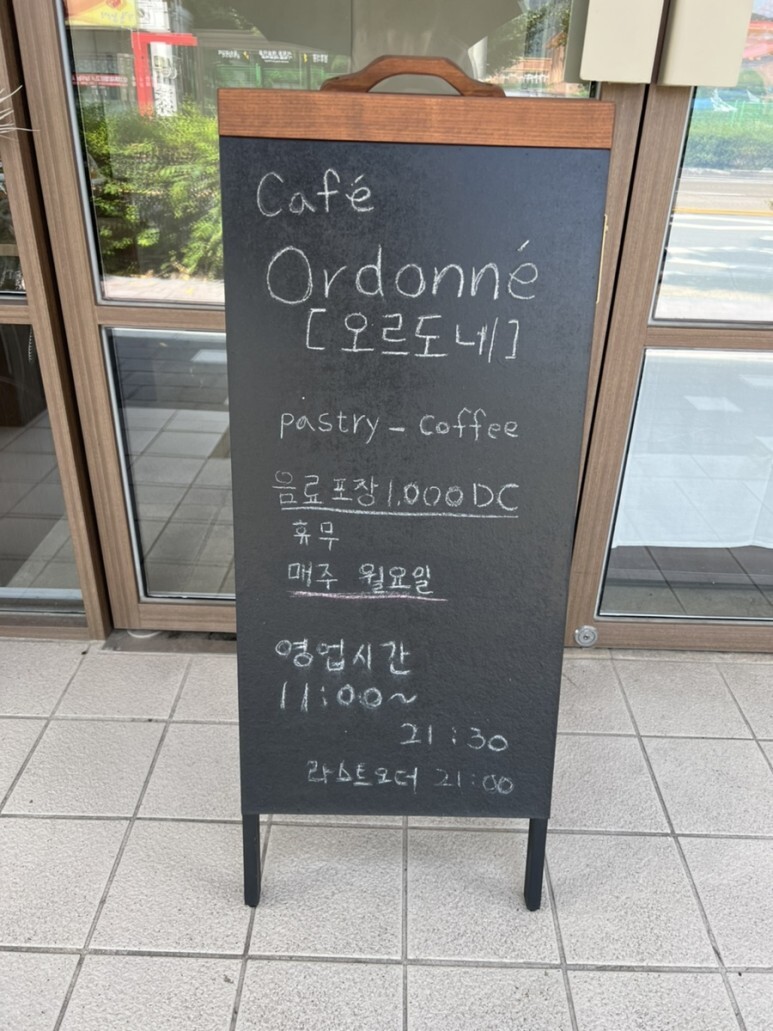 Café
Ordonné
[오르도네]
pastry - coffee
음료포장 1,000 DC
휴무
매주 월요일
영업시간
11:00~
21:30
라스트오더 21:00